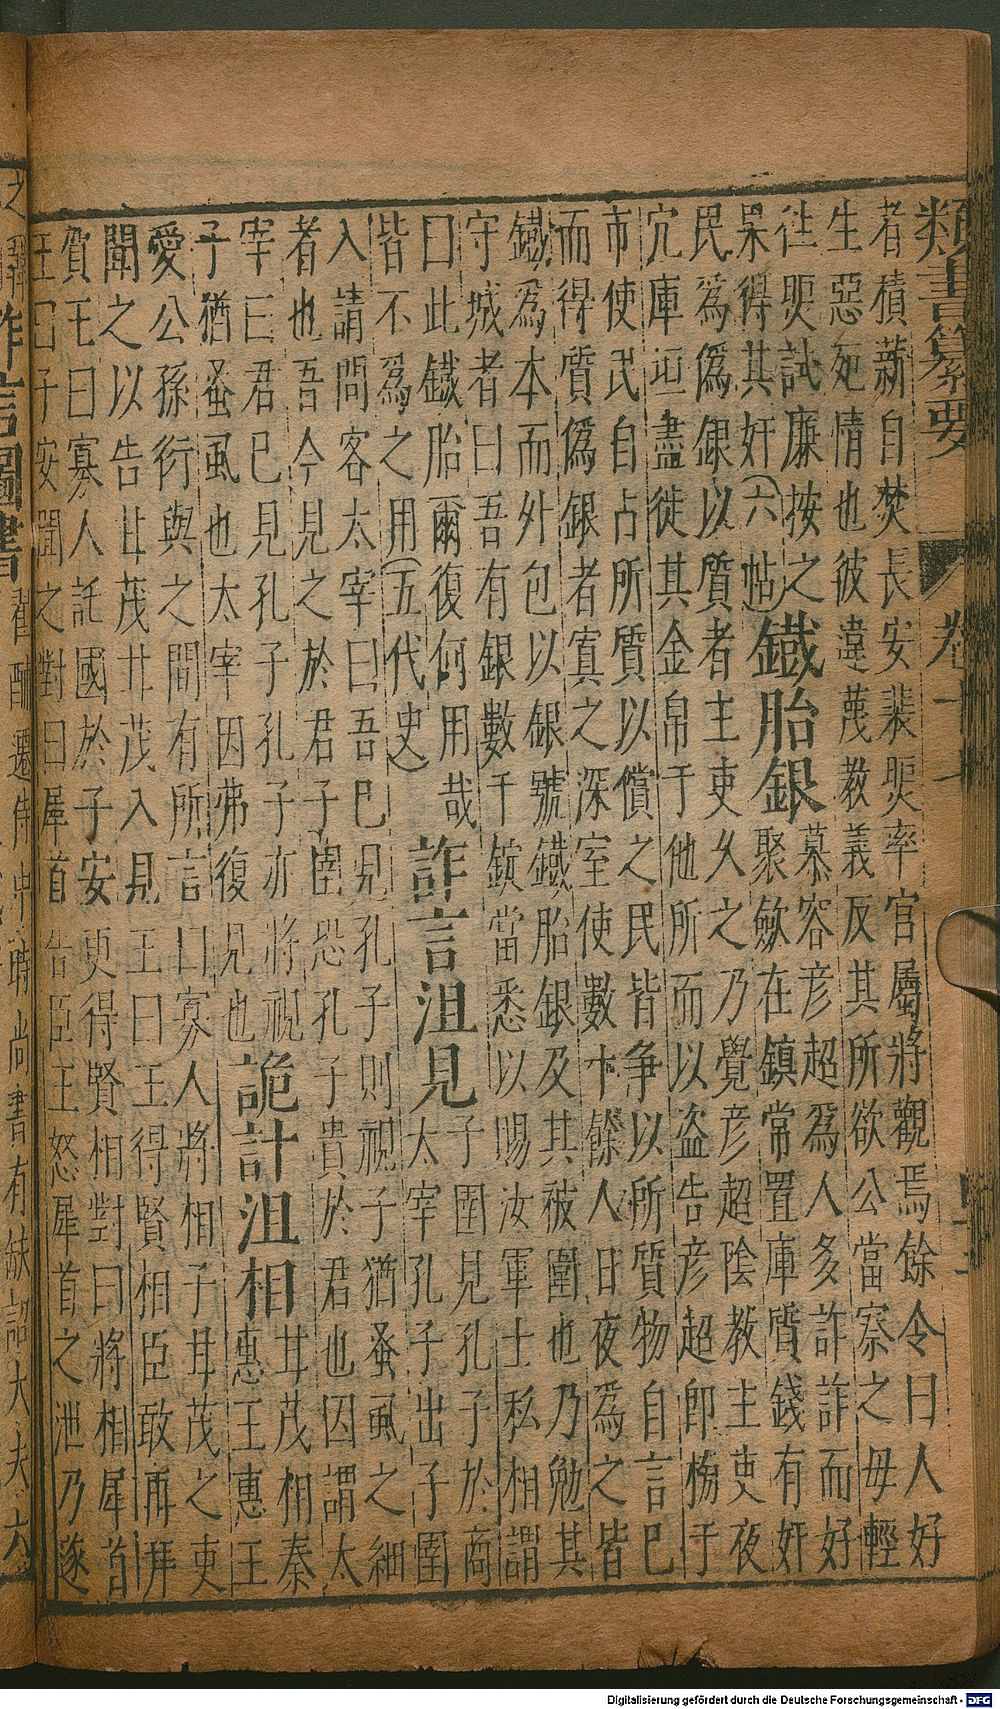 類書纂要
者積薪自焚長安裴煚率官屬將觀焉餘令曰人好
生惡死情也彼違蔑教義反其所欲公當察之毋輕
徃煚試廉按之
果得其奸(六帖)
鐵胎銀
慕容彥超爲人多詐詐而好
聚歛在鎮常置庫質錢有奸
民爲僞銀以質者主吏久之乃覺彥超陰教主吏夜
宂庫垣盡徙其金帛于他所而以盜告彥超即榜于
市使民自占所質以償之民皆争以所質物自言已
而得質僞銀者寘之深室使數十餘人日夜爲之皆
鐵爲本而外包以銀號鐵胎銀及其被圍也乃勉其
守城者曰吾有銀數千鋌當悉以賜汝軍士私相謂
曰此鐵胎爾復何用哉
皆不爲之用(五代史)
詐言沮見
子圉見孔子於商
太宰孔子出子圉
入請問客太宰曰吾已見孔子則視子猶蚤虱之細
者也吾今見之於君子圉恐孔子貴於君也因謂太
宰曰君已見孔子孔子亦將視
子猶蚤虱也太宰因弗復見也
詭計沮相
甘茂相秦
惠王惠王
愛公孫衍與之間有所言曰寡人將相子甘茂之吏
聞之以告甘茂甘茂入見王曰王得賢相臣敢再拜
賀王曰寡人託國於子安更得賢相對曰將相犀首
王曰子安聞之對曰犀首告臣王怒犀首之泄乃遂
遷侍中時尚書有缺詔大夫六
Digitalisierung gefördert durch die Deutsche Forschungsgemeinschaft - DFG